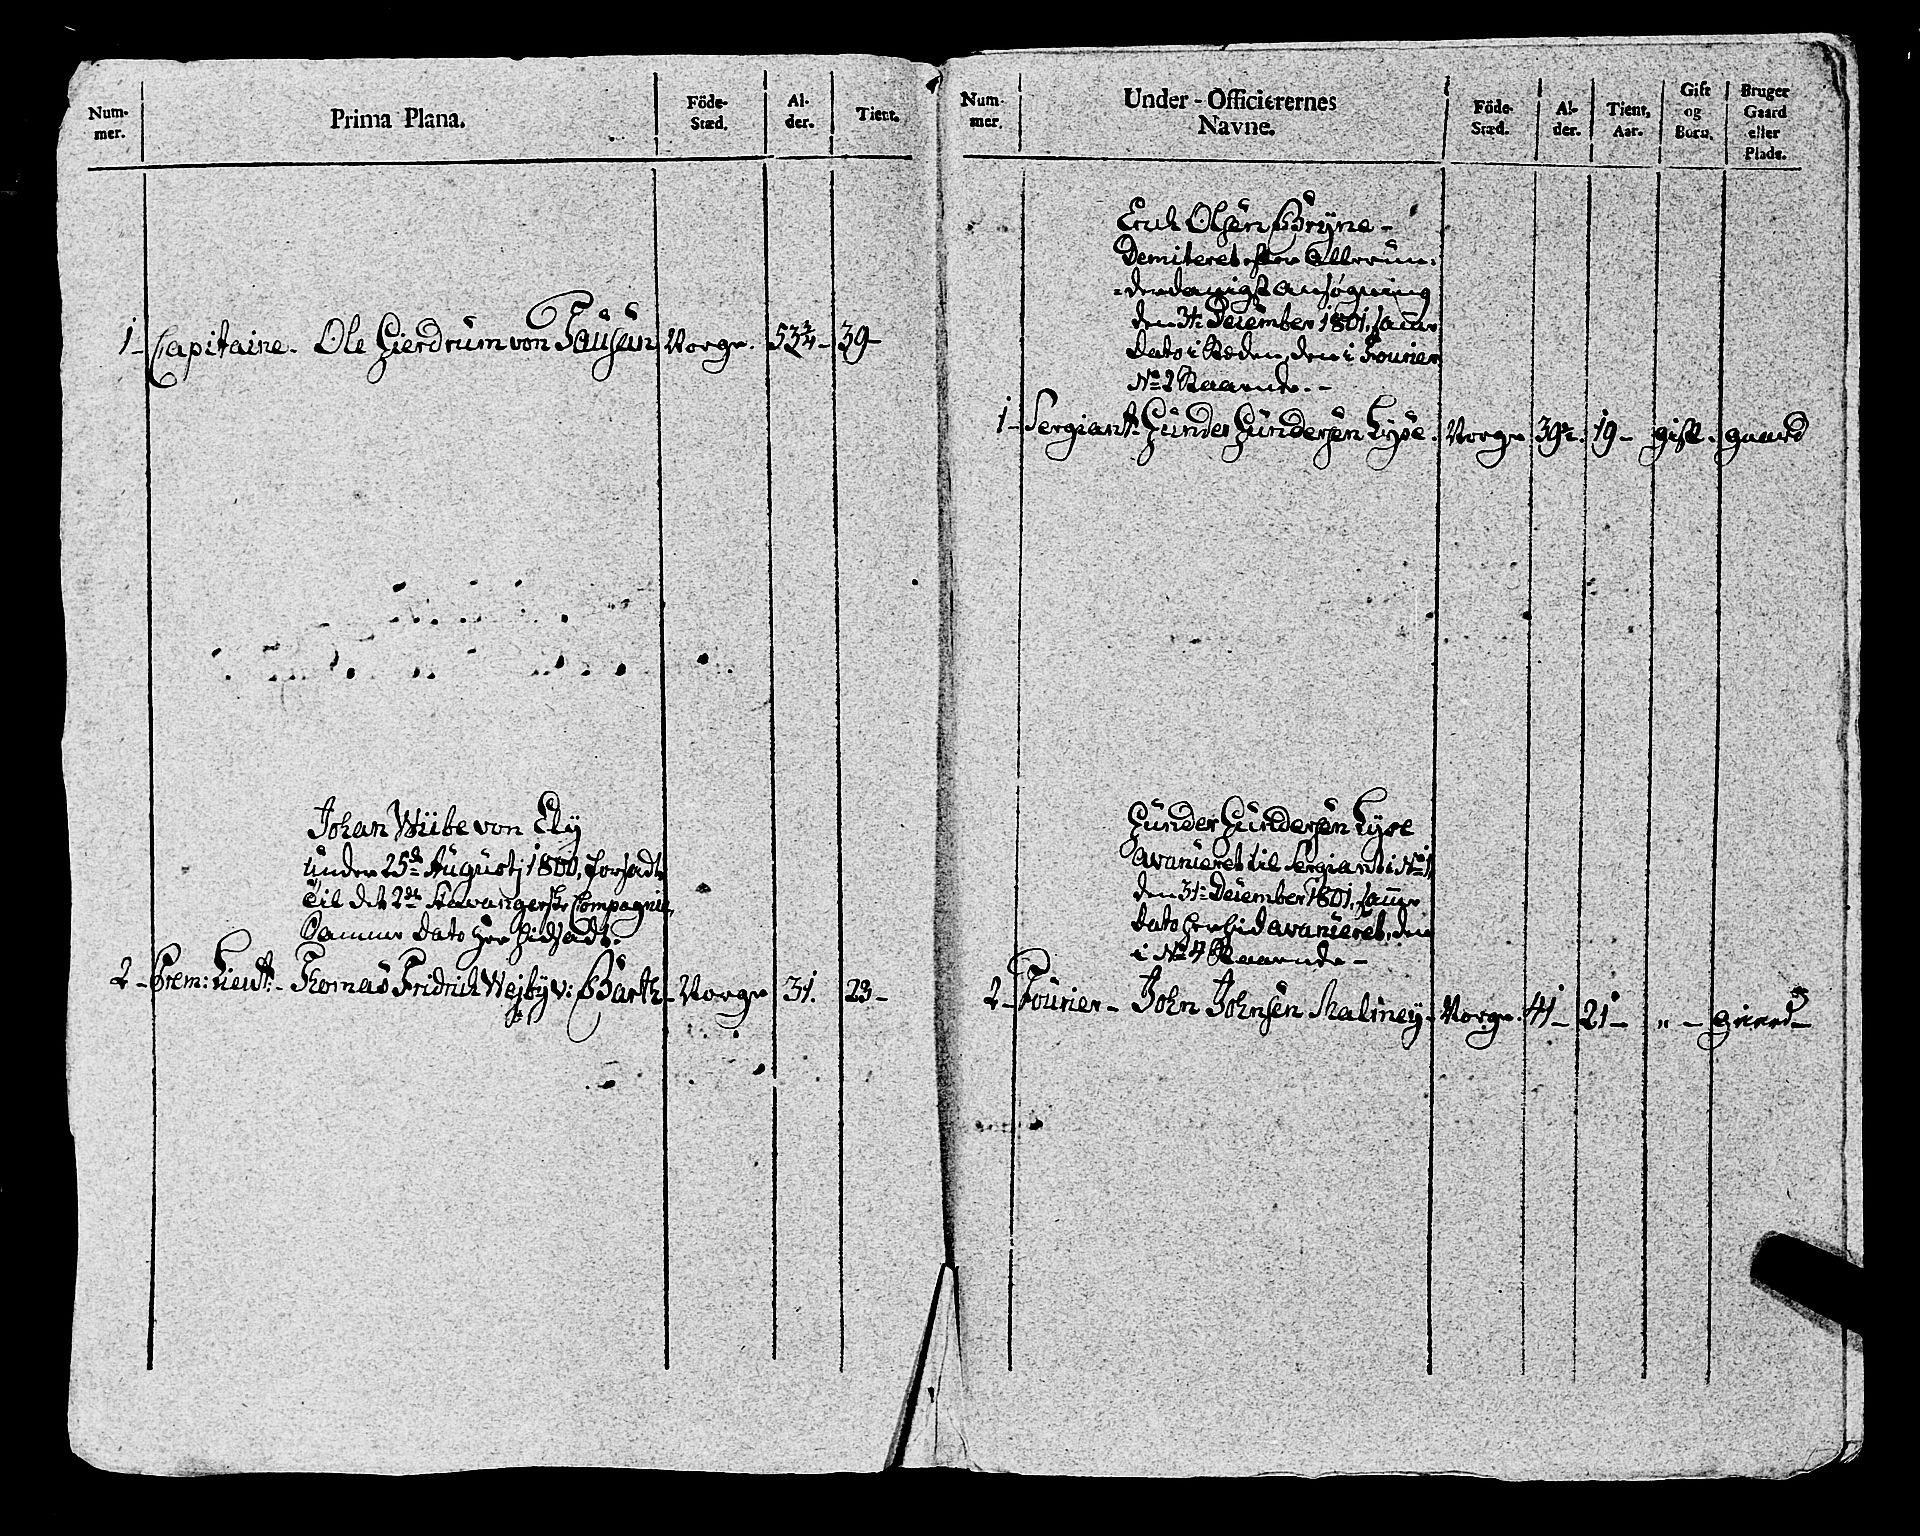 Num-
mer.
Prima Plana.
Föde-
Stæd.
Al-
der.
Tient.
1 - Capitaine - Ole Gierdrum von Fausan Norge. 53 3/4 - 39 -
Johan Wiibe von Ely
under 25de Augustj 1800, forsadt
til det 2det Stavangerske Compagnie,
Samme Dato her hidsadt.
2 - Prem: Lieut: - Thomas Fridrich Wejby v: Barth - Norge 31. 23 -
Num-
mer.
Under-Officierernes
Navne.
Föde-
Stæd.
Al-
der.
Tient,
Aar.
Gift
og
Börn.
Bruger
Gaard
eller
Plads.
Erich Olsen Bryne -
Demiteret efter Allerun-
derdanigst Ansøgning
den 31te Deiember 1801, samme
Dato i Steden, den i Fourier
No 2 Staaende. -
1 - Sergiant. Gunder Gundersen Lyse. Norge 39 1/2. 19 - gift. gaard
Gunder Gundersen Lyse
avanieret til Sergiant i No 1,
den 31te Deiember 1801, samme
Dato her hid avanieret, den
i No 4 Staaende -
2 - Fourier - John Johnsen Malmey - Norge. 41 - 21 - " - gaard -